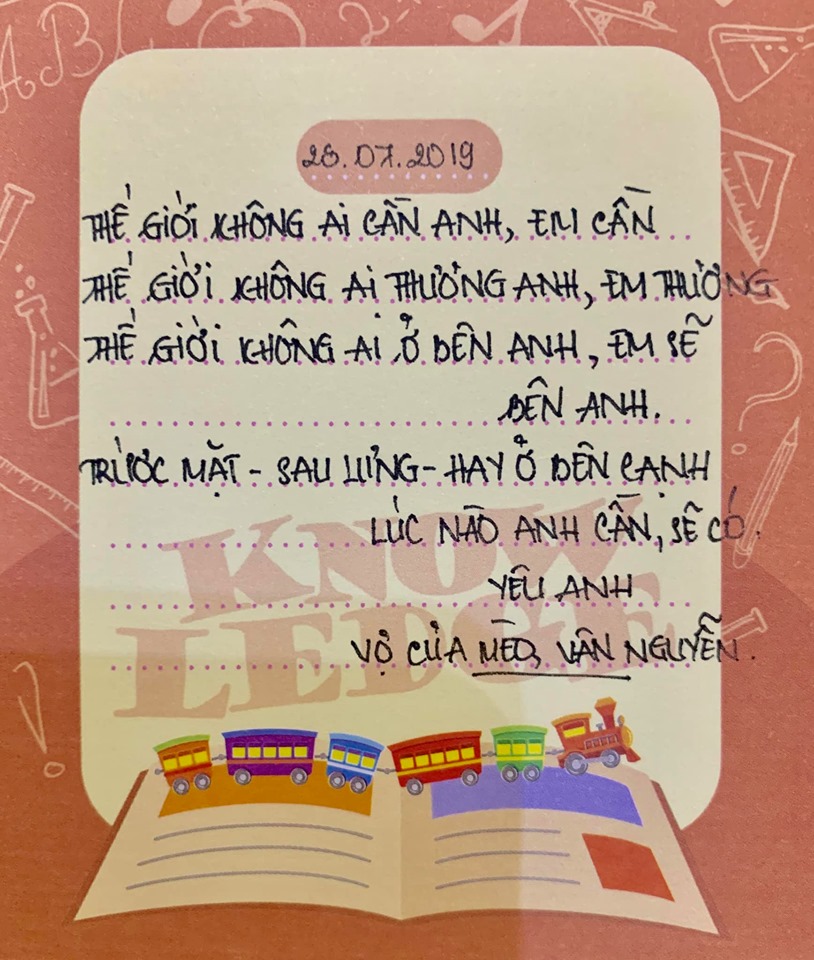 28.07.2019
THẾ GIỚI KHÔNG AI CẦN ANH, EM CẦN
THẾ GIỚI KHÔNG AI THƯƠNG ANH, EM THƯƠNG
THẾ GIỚI KHÔNG AI Ở BÊN ANH, EM SẼ
BÊN ANH.
TRƯỚC MẶT - SAU LƯNG - HAY Ở BÊN CẠNH
LÚC NÀO ANH CẦN, SẼ CÓ.
YÊU ANH
VỢ CỦA MÈO, VÂN NGUYỄN.
KNOW
LEDGE